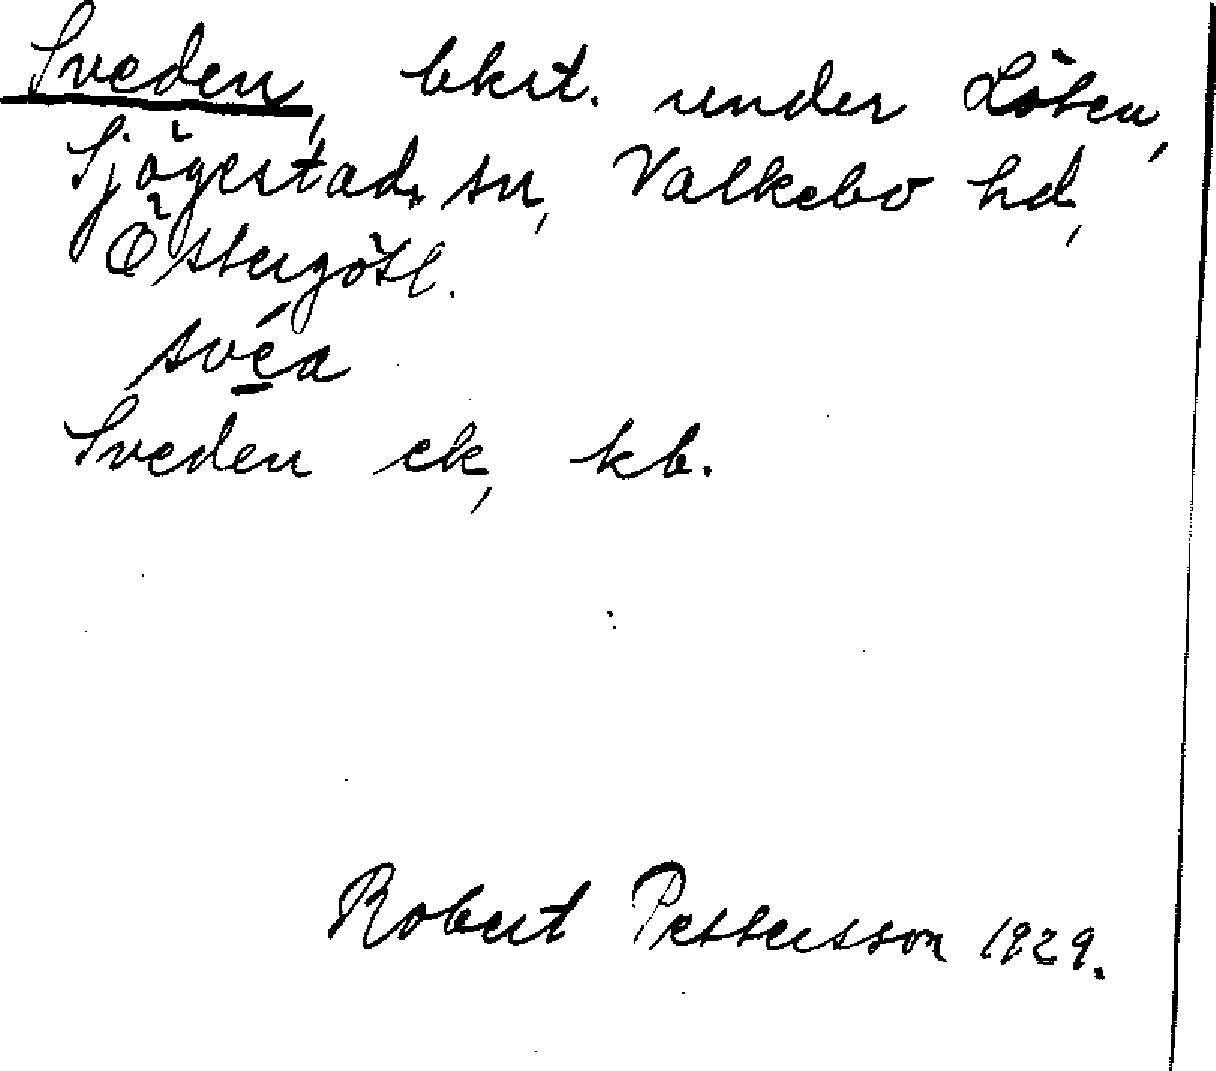 Sveden, bkst. under Lösen,
Sjögestads sn, Valkebo hd,
Östergötl.
svéa
Sveden ek, kb.
Robert Pettersson 1929.